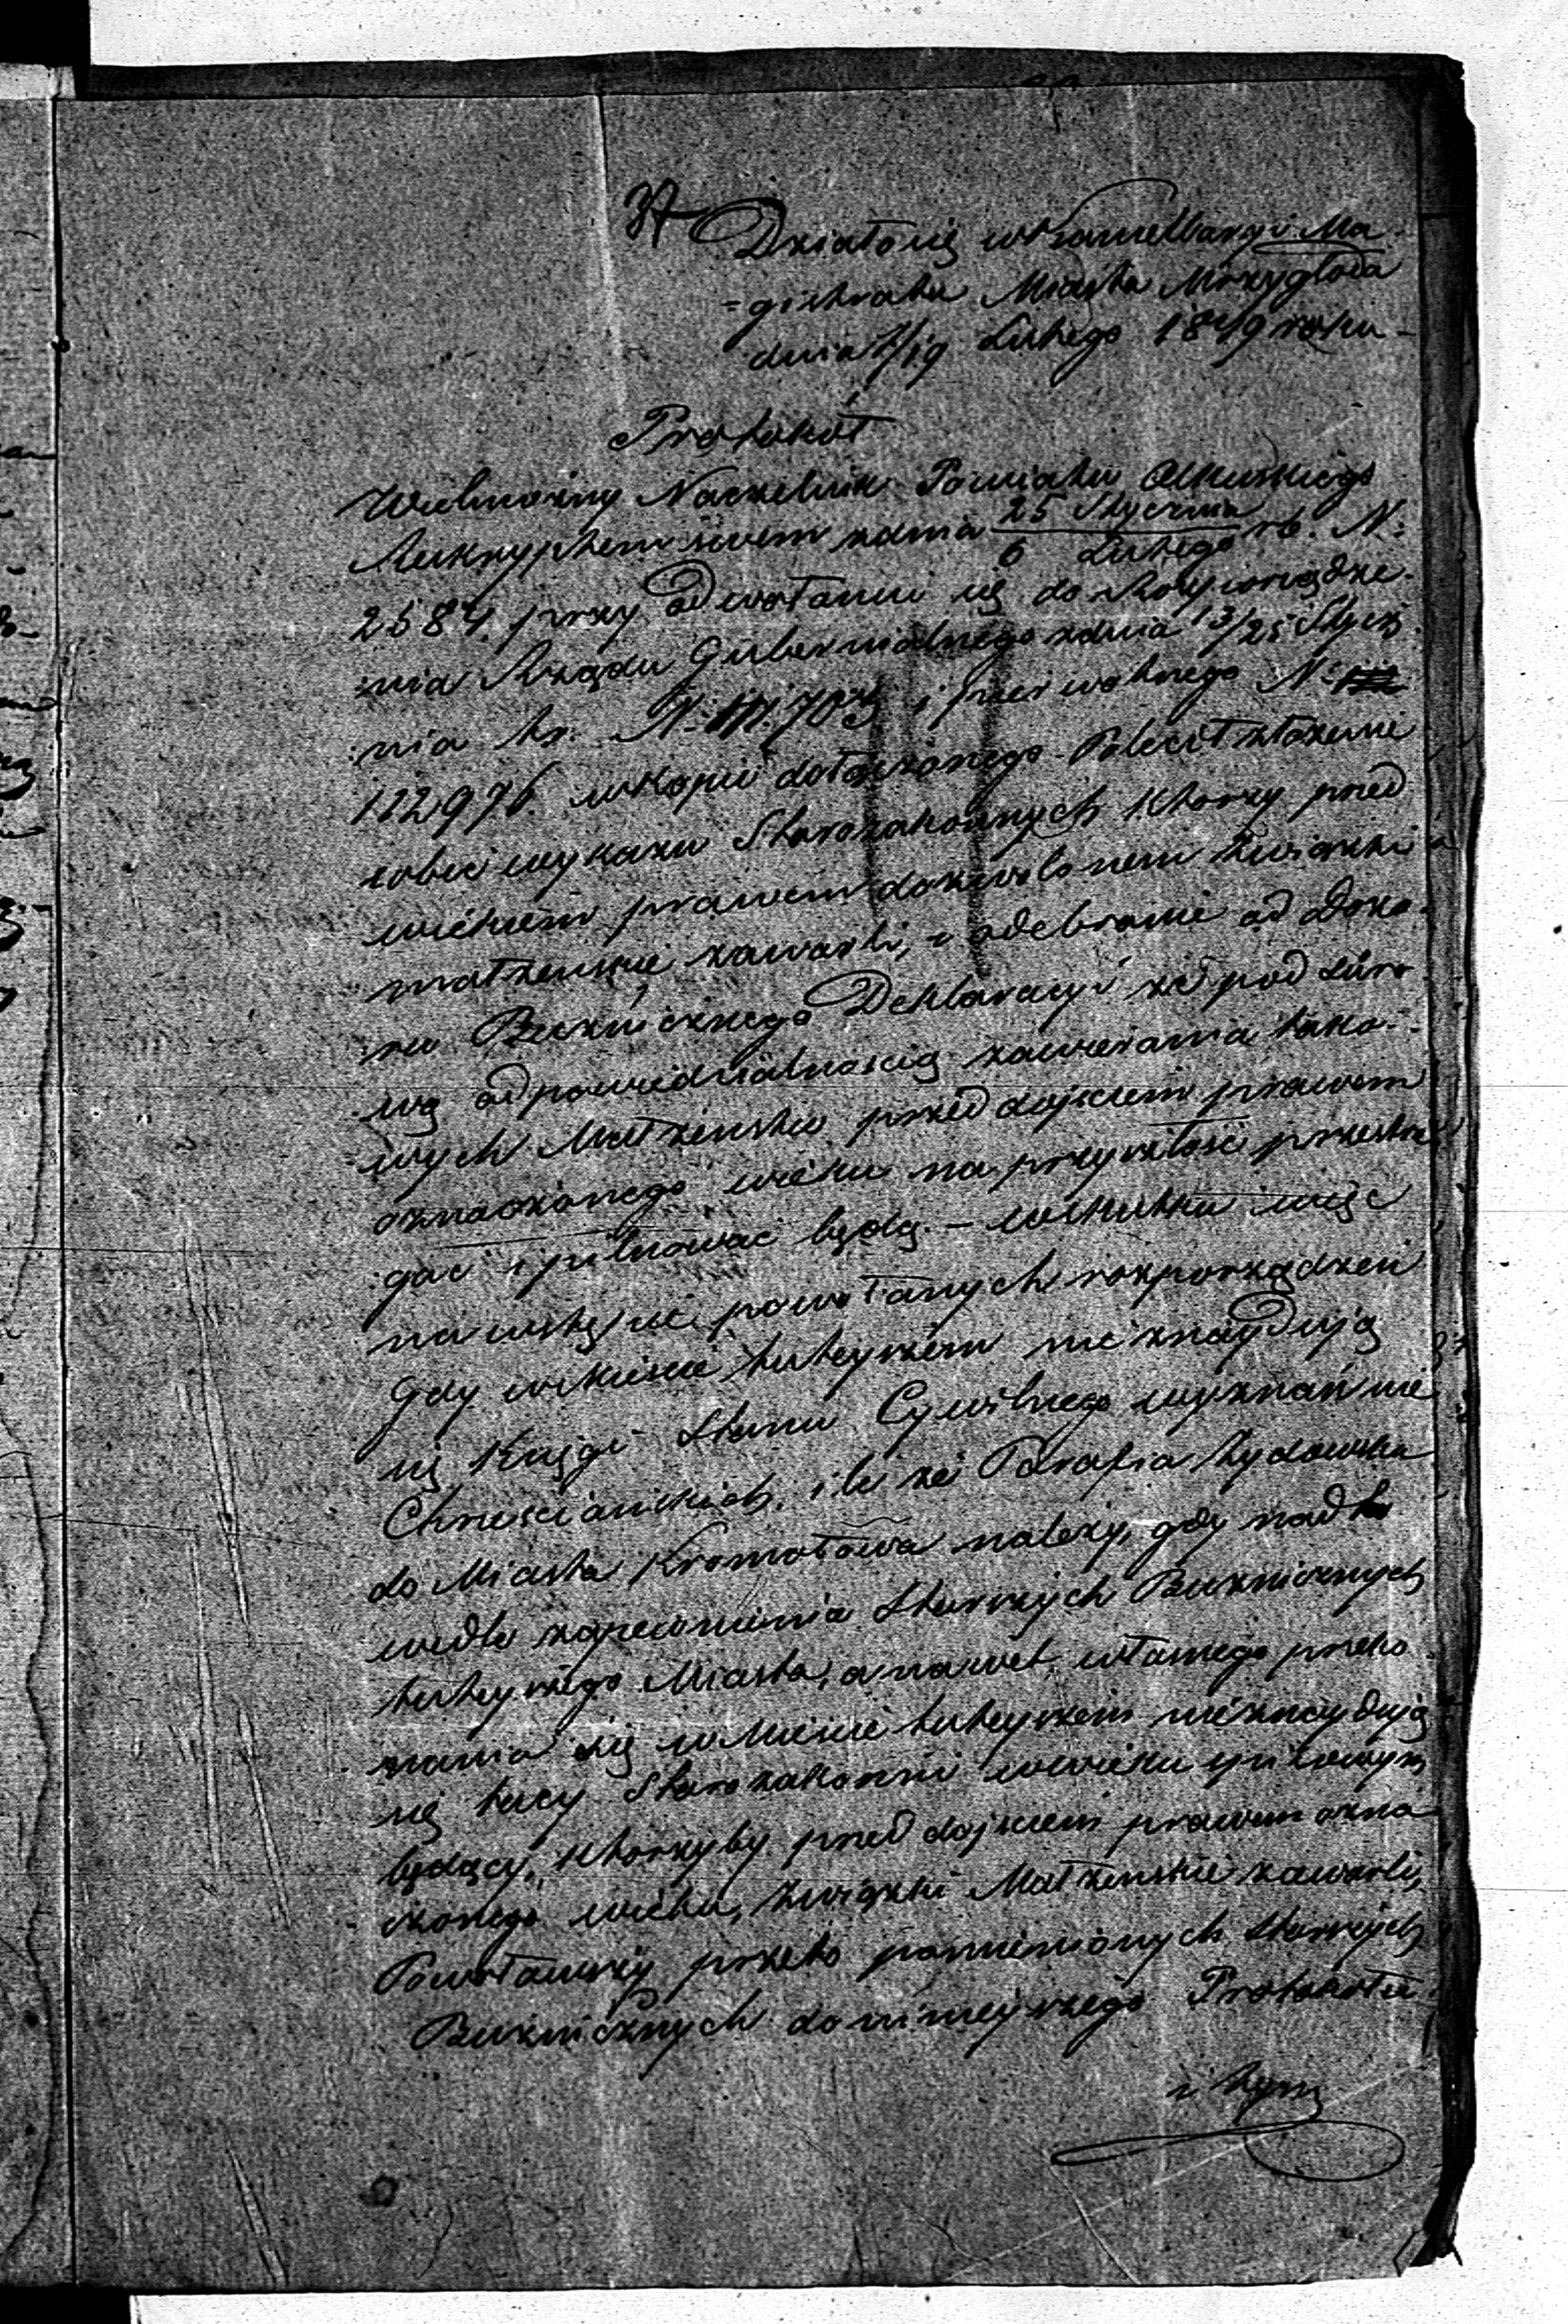 Działo się w Kancellaryi Ma-
=gistratu Miasta Mrzygłoda
dnia 7/19 Lutego 1849 roku -
Protokół
Wielmożny Naczelnik Powiatu Olkuskiego
Reskryptem swem z dnia 25 Stycznia / 6 Lutego rb. N:
2584. przy odwołaniu się do Rosporządze-
:nia Rządu Gubernialnego z dnia 13/25 Stycz-
:nia br. N: 703 i pierwotnego N:
122,976. w kopii dołączonego - Polecił złożenie
sobie wykazu Starozakonnych którzy przed
wiekiem prawem dozwolonem związki
małżeńskie zawarli, i odebranie od Dozo-
:ru Bużnicznego Deklaracyi że pod suro-
:wą odpowiedzialnością zawierania tako-
:wych Małżeństw przed dojściem prawem
oznaczonego wieku na przyszłość przestrze
:gać i pilnować będą. - w skutku więc
na wstępie powołanych rozporządzeń
gdy w mieście tutejszem nie znaydują
się Księgi Stanu Cywilnego wyznań nie
Chrześciańskich, ile że Parafia Żydowska
do Miasta Kromołowa należy, gdy nad to
wedle zapewnienia Starszych Bużnicznych
tutejszego Miasta, a nawet własnego przeko-
nania się w Mieście tutejszem nie znayduią
się tacy Starozakonni w wieku
będący, którzyby przed dojściem prawem ozna-
czonego wieku, związki Małżeńskie zawarli,
Powoławszy przeto pomienionych Starszych
Bużnicznych do niniejszego Protokołu
i tymi